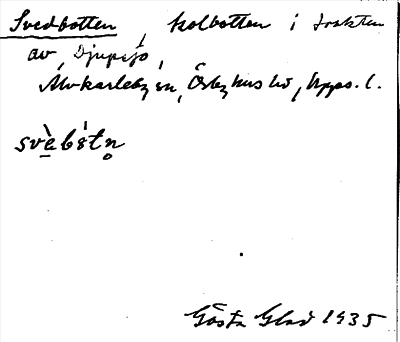 Svedbotten, kolbotten i trakten
av Djupsjö,
Älvkarleby sn, Örbyhus hd, Upps. l.
svèbòtn̥
Gösta Glad 1935